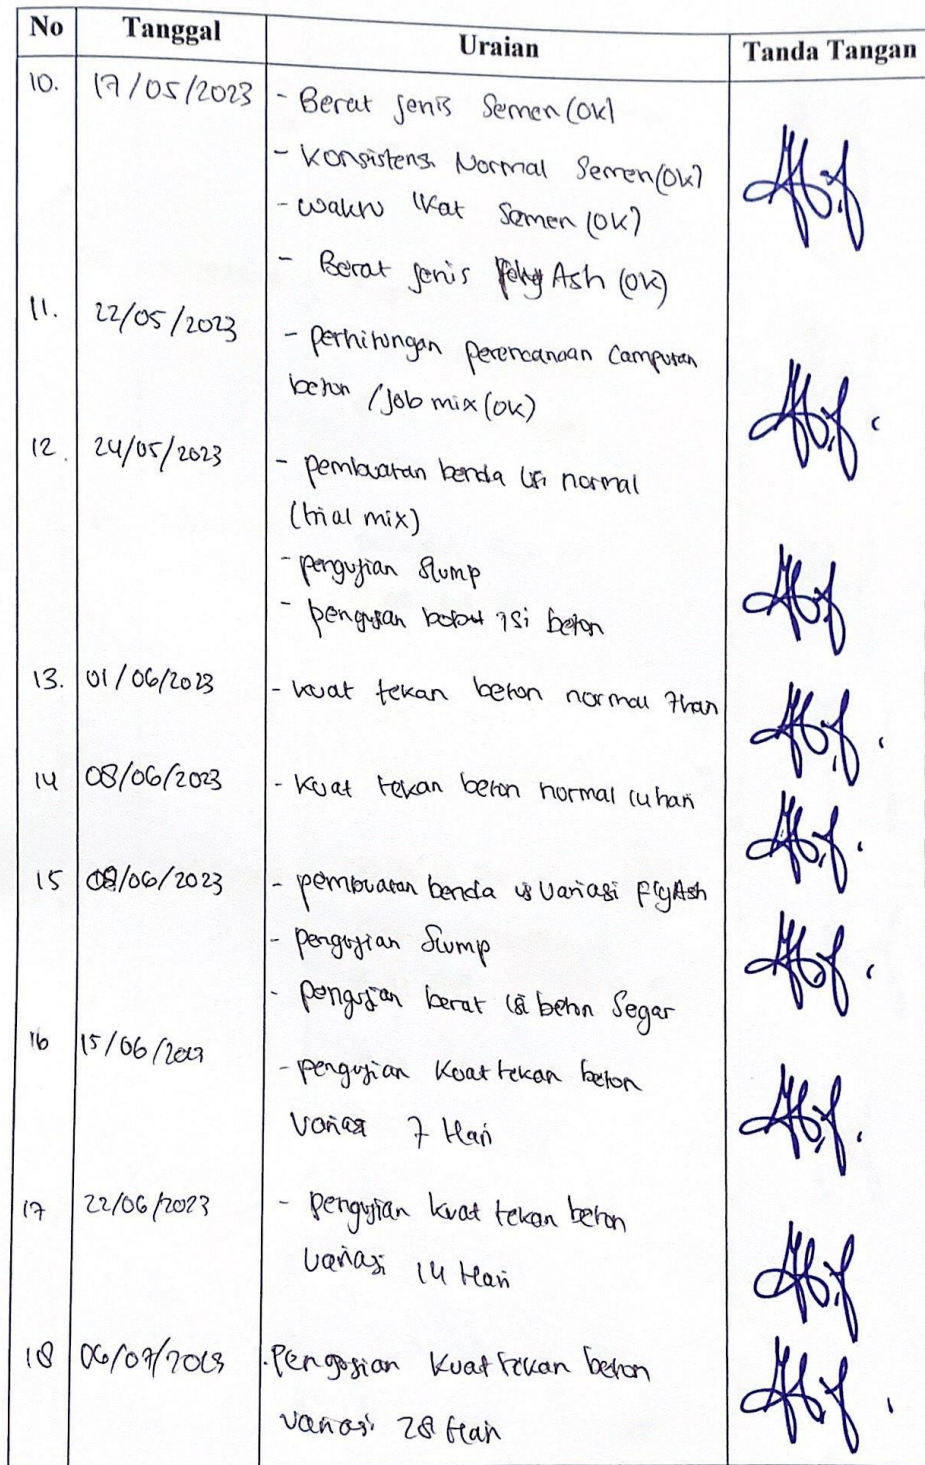 No Tanggal Uraian Tanda Tangan
10. 17/05/2023 - Berat jenis Semen (OK)
- Konsistensi Normal Semen (OK)
- Waktu Ikat Semen (OK)
- Berat jenis Fly Ash (OK)
11. 22/05/2023 - perhitungan perencanaan Campuran
beton / Job mix (OK)
12. 24/05/2023 - pembuatan benda Uji normal
(trial mix)
- pengujian Slump
- pengujian bobot isi beton
13. 01/06/2023 - kuat tekan beton normal 7 hari
14 08/06/2023 - Kuat tekan beton normal 14 hari
15 08/06/2023 - pembuatan benda uji Variasi Fly Ash
- pengujian Slump
- pengujian berat isi beton Segar
16 15/06/2023 - pengujian Kuat tekan beton
Variasi 7 Hari
17 22/06/2023 - pengujian kuat tekan beton
Variasi 14 Hari
18 06/07/2023 . Pengujian Kuat tekan beton
Variasi 28 Hari